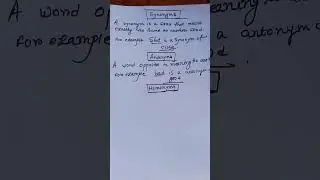 Synonyms
A synonym is a word that means
exactly the same as another word.
For example Shut is a synonym of
close
Antonyms
A word opposite in meaning to
For example bad is a antonym
good
Homonyms
A word oppo
For example
a antonym of